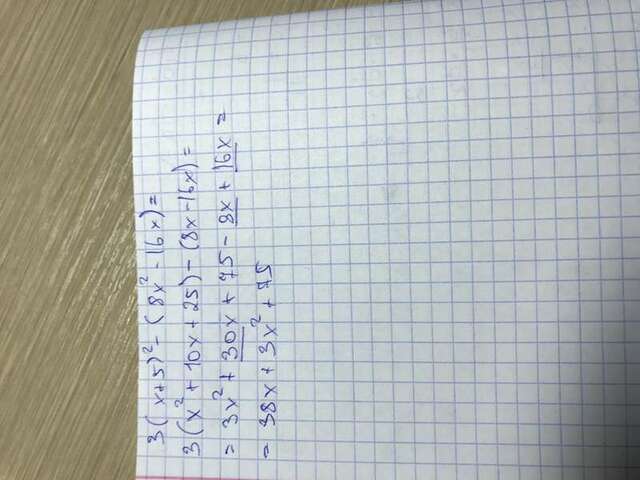 3(x+5)² - (8x² - 16x) =
3(x² + 10x + 25) - (8x - 16x) =
= 3x² + 30x + 75 - 8x + 16x =
= 38x + 3x² + 75